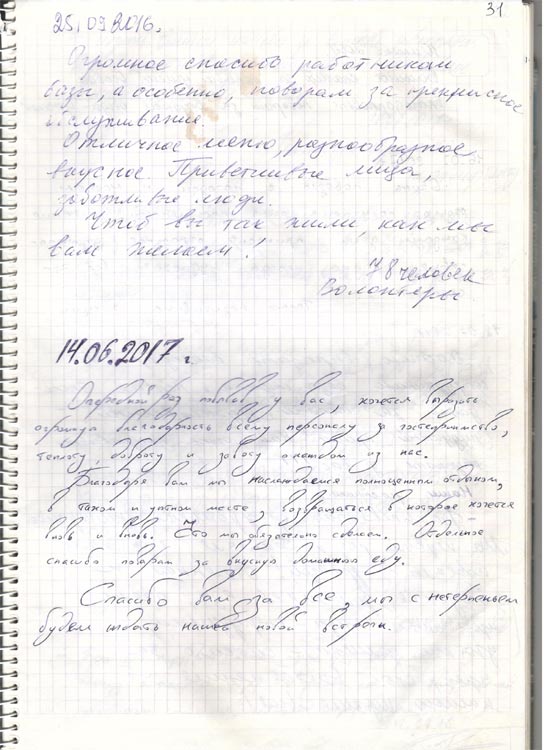 31
25.09.2016.
Огромное спасибо работникам
базы, а особенно, поварам за прекрасное
обслуживание.
Отличное меню, разнообразное,
вкусное. Приветливые лица,
заботливые люди.
Чтоб вы так жили, как мы
вам желаем!
78 человек
Волонтеры
14.06.2017 г.
Очередной раз побывав у вас, хочется выразить
огромную благодарность всему персоналу за гостеприимство,
теплоту, доброту и заботу о каждом из нас.
Благодаря вам мы наслаждаемся полноценным отдыхом,
в тихом и уютном месте, возвращаться в которое хочется
вновь и вновь. Что мы обязательно сделаем. Отдельное
спасибо поварам за вкусную домашнюю еду.
Спасибо вам за все, мы с нетерпеньем
будем ждать нашей новой встречи.